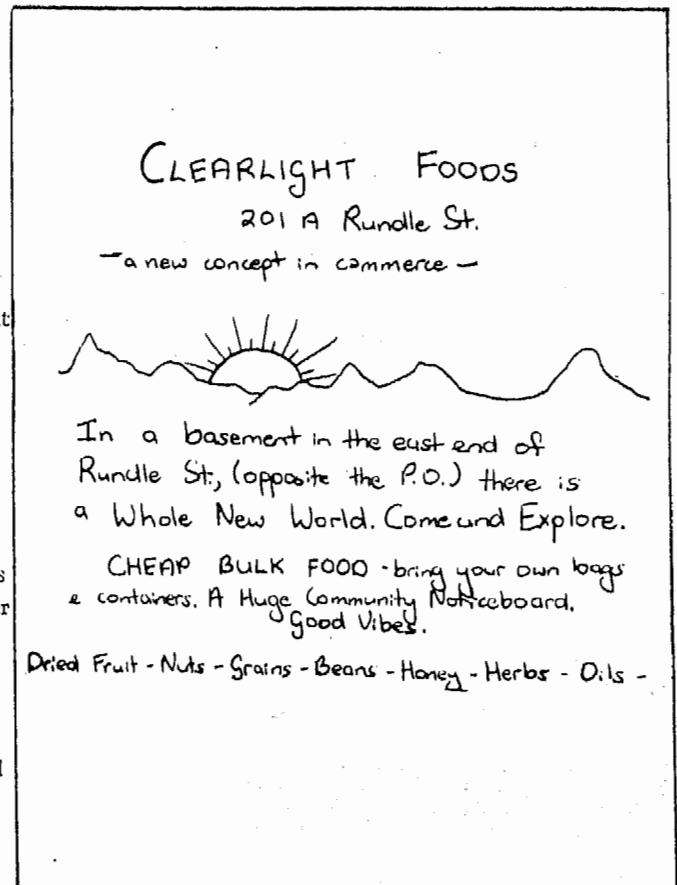 CLEARLIGHT FOODS
201 A Rundle St.
- a new concept in commerce -
In a basement in the east end of
Rundle St., (opposite the P.O.) there is
a Whole New World. Come and Explore.
CHEAP BULK FOOD - bring your own bags
& containers. A Huge Community Noticeboard.
Good Vibes.
Dried Fruit - Nuts - Grains - Beans - Honey - Herbs - Oils -